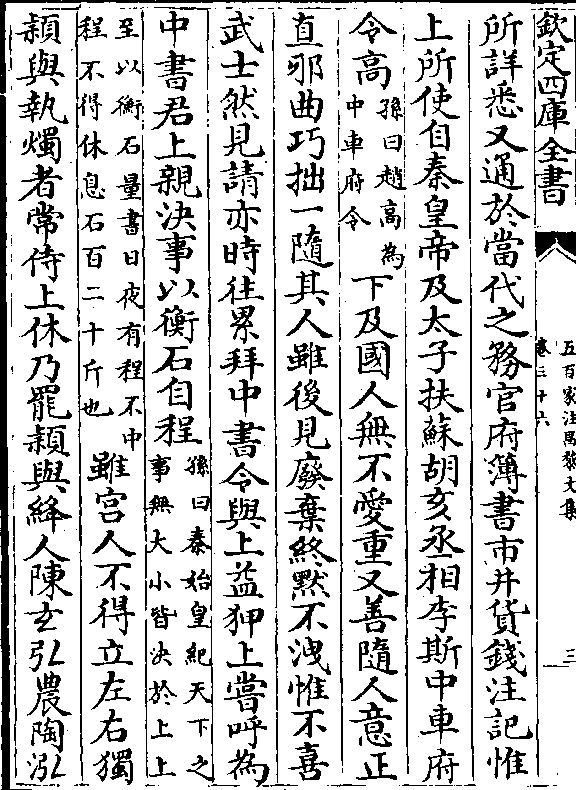 欽定四庫全書
五百家注昌黎文集
卷三十六
三
所詳悉又通於當代之務官府簿書市井貨錢注記惟
上所使自秦皇帝及太子扶蘇胡亥丞相李斯中車府
令高孫曰趙高為中車府令下及國人無不愛重又善隨人意正
直邪曲巧拙一隨其人雖後見廢棄終黙不洩惟不喜
武士然見請亦時往累拜中書令與上益狎上嘗呼為
中書君上親決事以衡石自程孫曰秦始皇紀天下之事無大小皆決於上上
至以衡石量書日夜有程不中程不得休息石百二十斤也雖宫人不得立左右獨
頴與執燭者常侍上休乃罷頴與絳人陳玄弘農陶泓